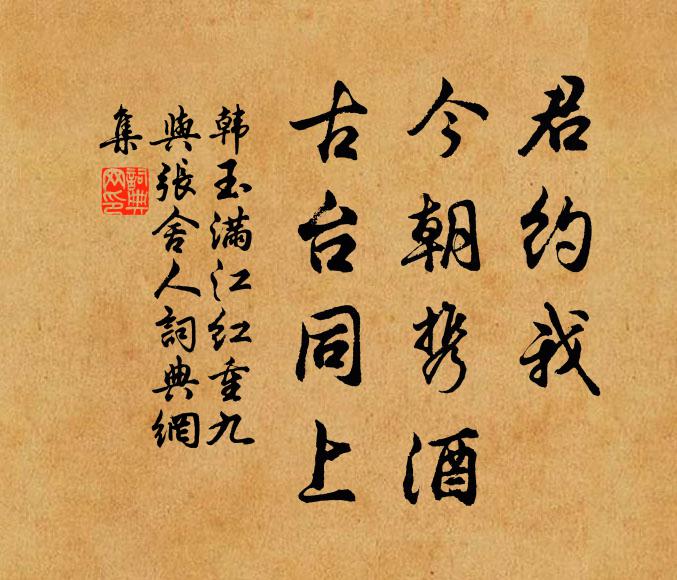 君约我
今朝携酒
古台同上
韩玉满江红重九
與張舍人詞典網
集
詞典网印